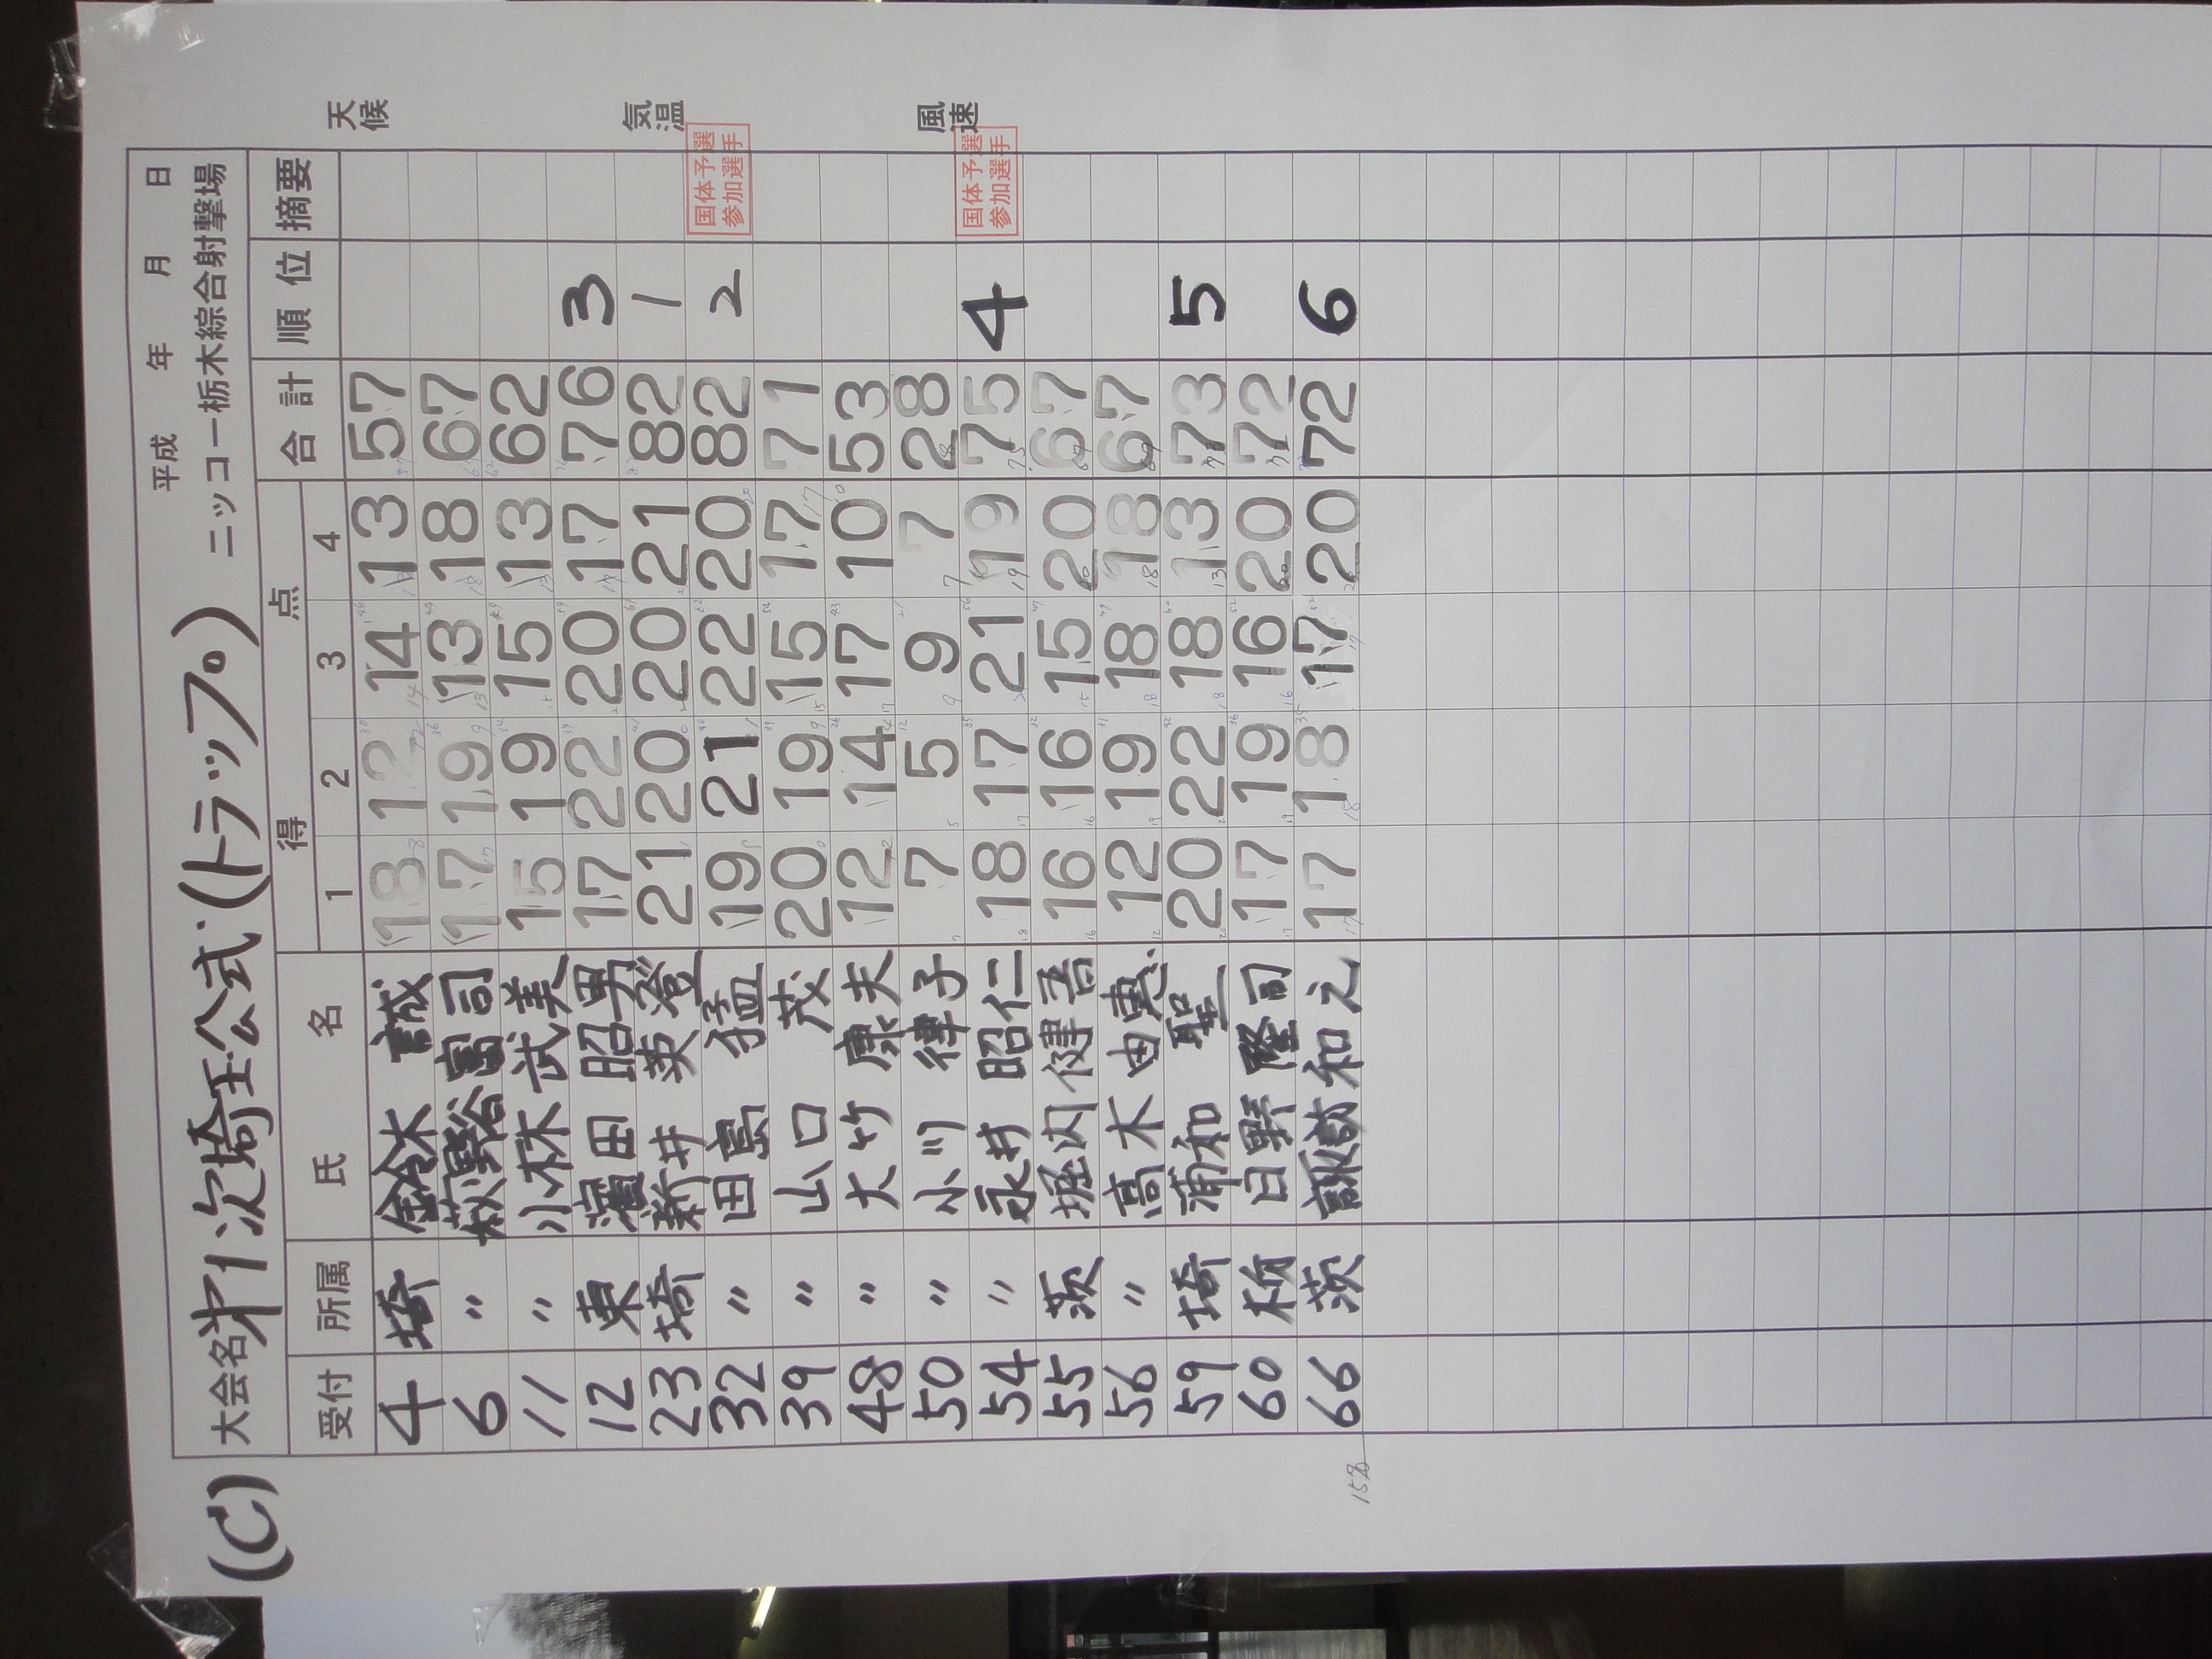 (C)
平成 年 月 日
大会名 第1次埼玉公式(トラップ) ニッコー栃木綜合射撃場
天候
気温
風速
受付 所属 氏 名 得 点 合 計 順 位 摘要
1 2 3 4
4 埼 鈴木 誠 18 12 14 13 57
6 〃 萩野谷 富司 17 19 13 18 67
11 〃 小林 武美 15 19 15 13 62
12 東 濱田 昭男 17 22 20 17 76 3
23 埼 新井 英登 21 20 20 21 82 1
32 〃 田島 猛 19 21 22 20 82 2 国体予選 参加選手
39 〃 山口 茂 20 19 15 17 71
48 〃 大竹 康夫 12 14 17 10 53
50 〃 小川 律子 7 5 9 7 28
54 〃 永井 昭仁 18 17 21 19 75 4 国体予選 参加選手
55 茨 堀内 健吾 16 16 15 20 67
56 〃 高木 由惠 12 19 18 18 67
59 埼 浦和 聖 20 22 18 13 73 5
60 栃 日野 隆司 17 19 16 20 72
66 茨 諏訪 和之 17 18 17 20 72 6